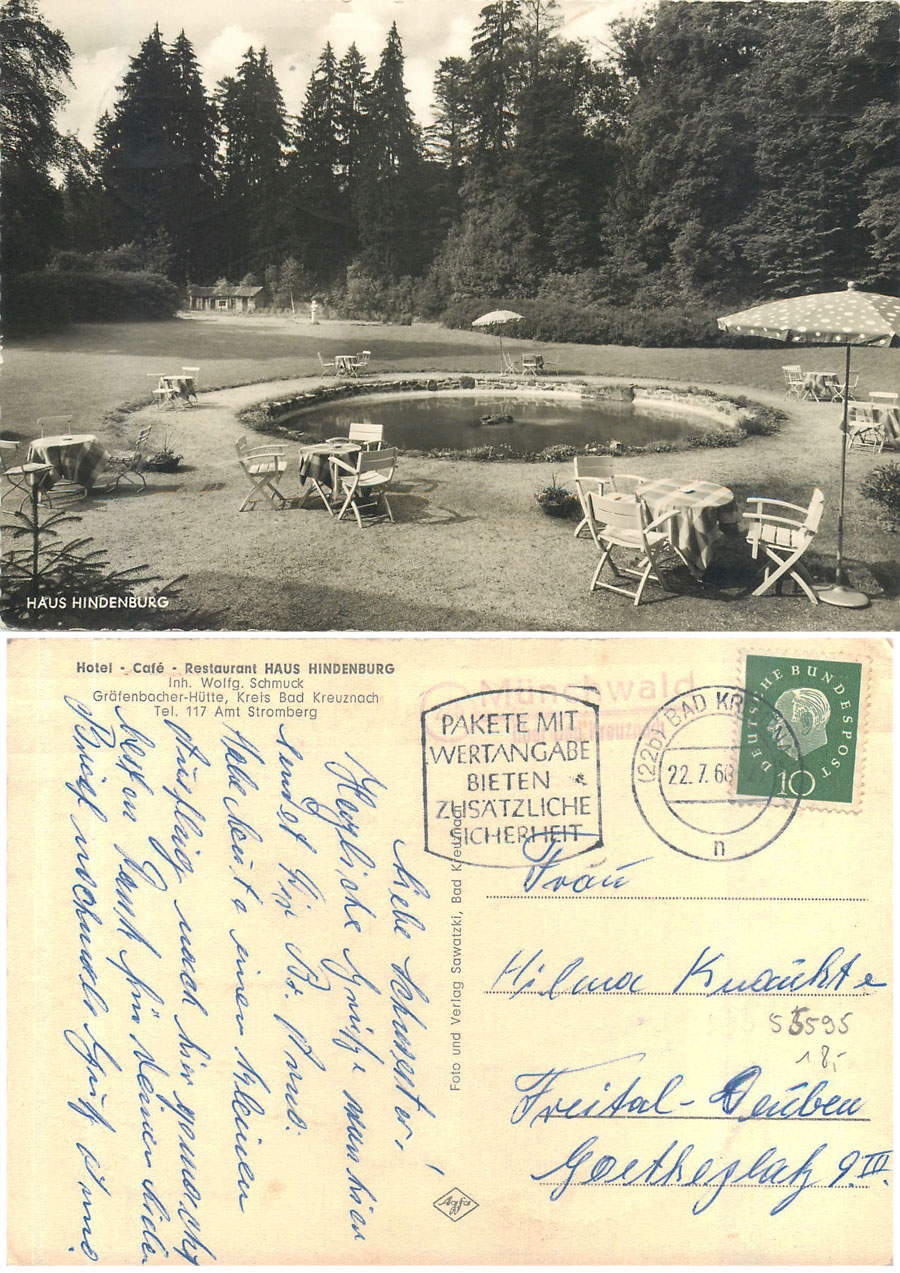 HAUS HINDENBURG
Hotel - Café - Restaurant HAUS HINDENBURG
Inh. Wolfg. Schmuck
Gräfenbacher-Hütte, Kreis Bad Kreuznach
Tel. 117 Amt Stromberg
Münchwald
über Bad Kreuznach
PAKETE MIT
WERTANGABE
BIETEN
ZUSÄTZLICHE
SICHERHEIT
(22b) BAD KREUZNACH
22.7.60
n
DEUTSCHE BUNDESPOST
10
Liebe Schwester,
Herzliche Grüße von hier
sendet Dir Br.
Habe heute einen kleinen
Ausflug nach hier gemacht
Besten Dank für deinen lieben
Foto und Verlag Sawatzki, Bad Kreuznach
Agfa
Frau
Hilma Knauthe
S 5595
18,-
Freital-Deuben
Goetheplatz 9 III.